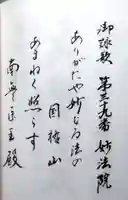 御詠歌 第 九番 妙法院
ありがたや妙なる法の
山
あまねく照らす
南無医王殿